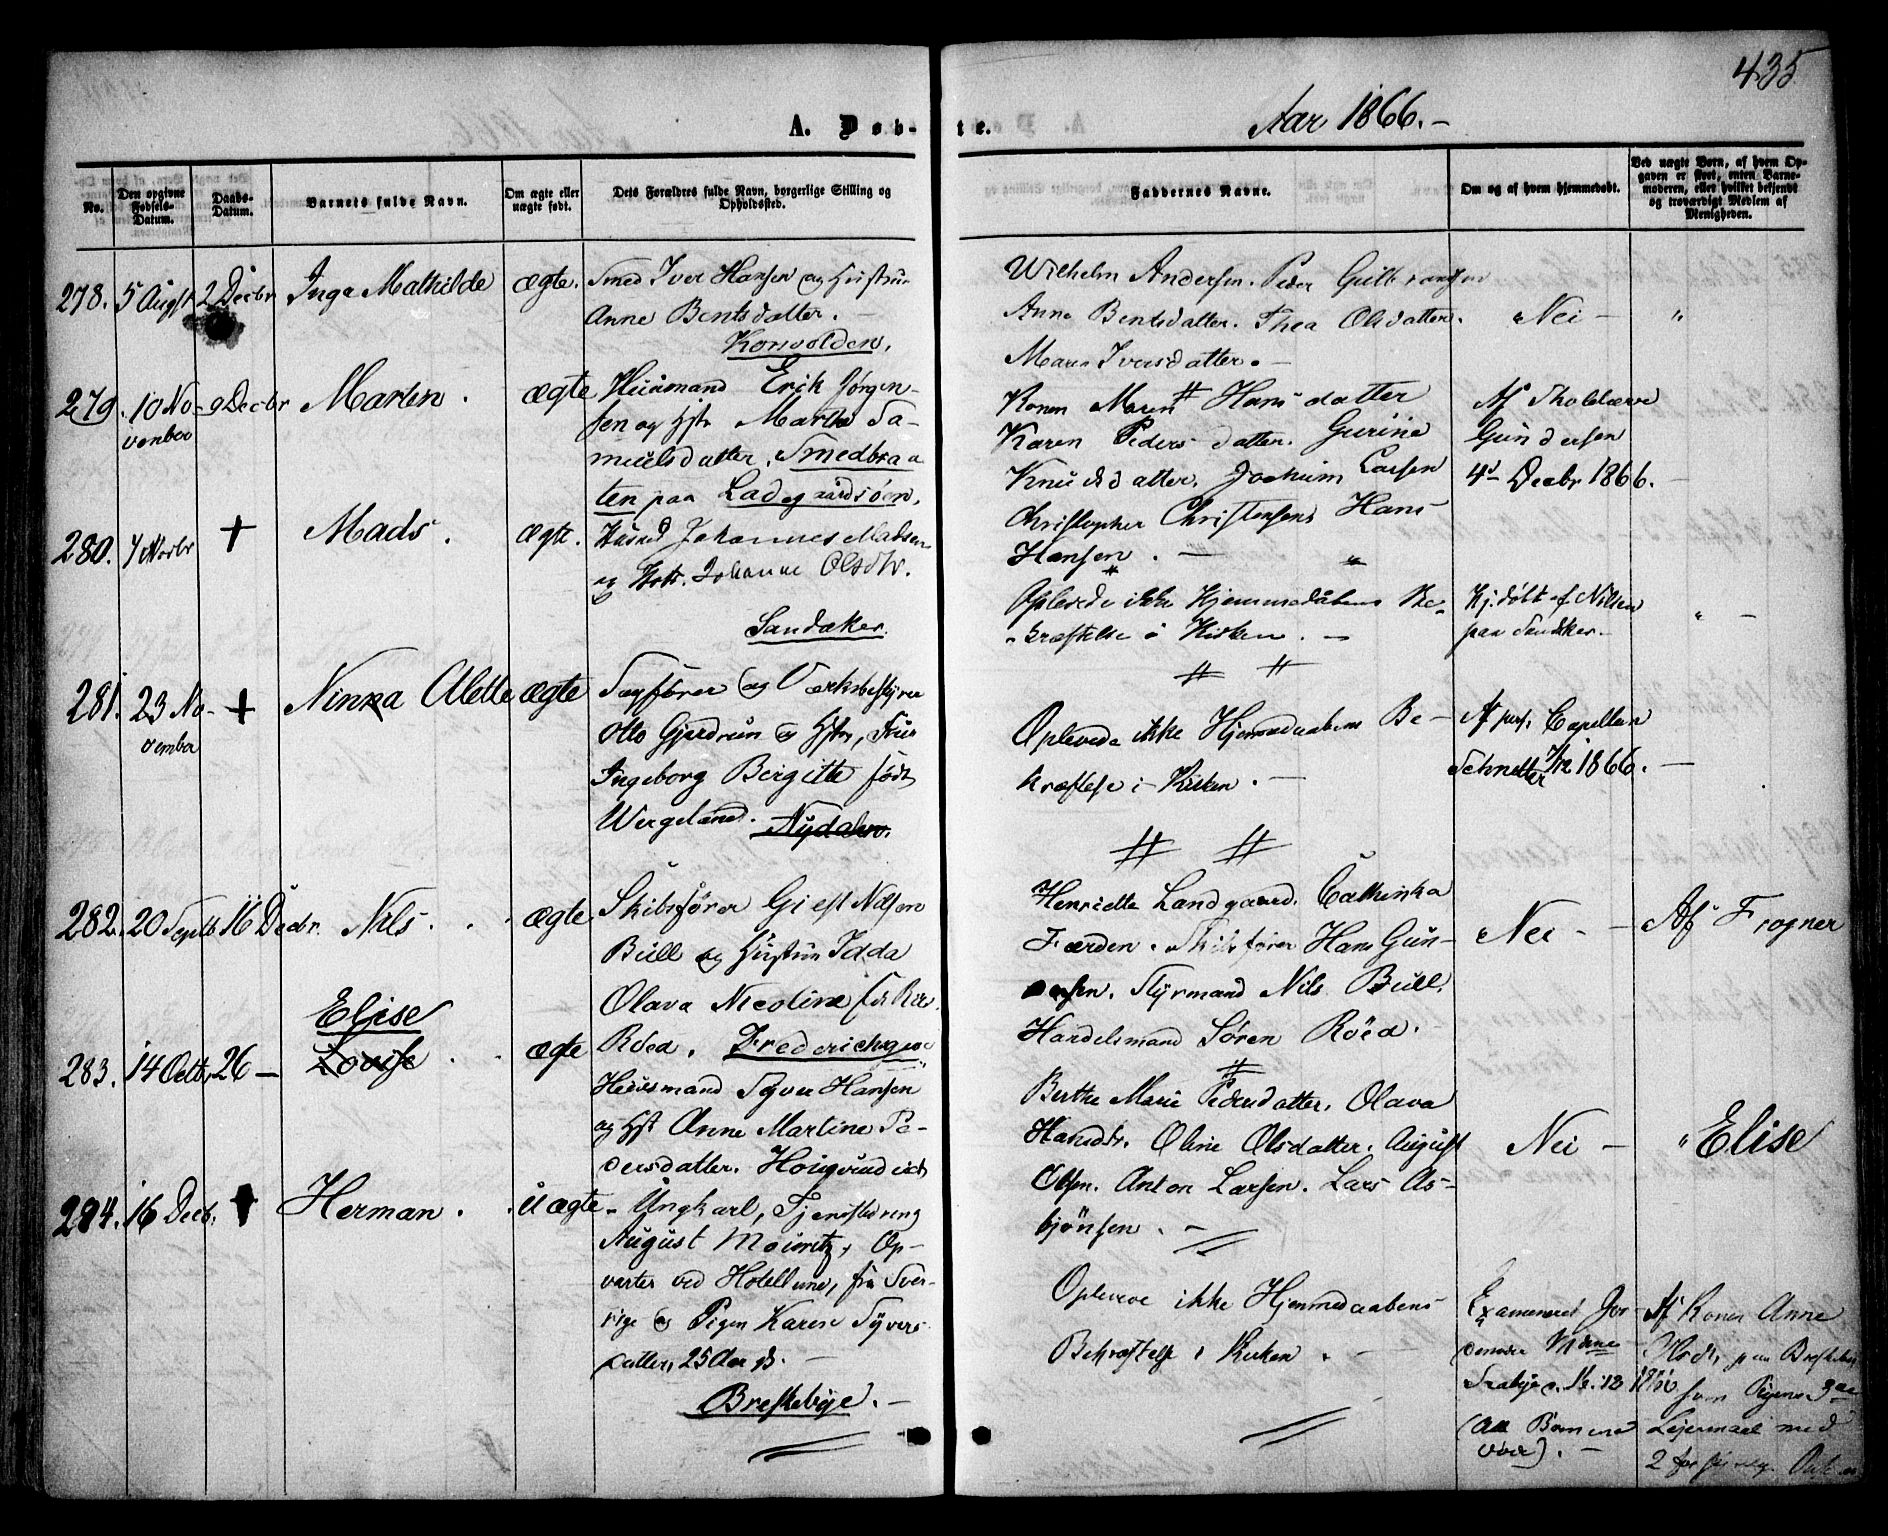 435
A. Døb-te. Aar 1866.-
No.
Den opgivne Fødsels-Datum.
Daabs-Datum.
Barnets fulde Navn.
Om ægte eller uægte født.
Dets Forældres fulde Navn, borgerlige Stilling og Opholdssted.
Faddernes Navne.
Om og af hvem hjemmedøbt.
Ved uægte Børn, af hvem Opgaven er skeet, enten Barnemoderen, eller hvilket bekjendt og troværdigt Medlem af Menigheden.
278. 5 Augst 2 Decbr Inga Mathilde ægte.
Smed Iver Hansen og Hustru
Anne Bentsdatter. -
Korsvolden.
Wilhelm Andersen. Peder Gulbrandsen
Anne Bentsdatter. Thea Olsdatter.
Maren Iversdatter. -
Nei - "
279. 10 No-
vember
9 Decbr Marten. ægte
Huusmand Erik Jørgen-
sen og Hstr Marthe Sa-
muelsdatter, Smedbraa
ten paa Ladegaardsøen.
Konen Maren Hansdatter
Karen Pedersdatter. Gurine
Knudsdatter. Jochum Larsen
Christopher Christensen Hans
Hansen. -
Af Tholdære
Gundersen
4d Decbr 1866. -
280. 7 Novbr + Mads. ægte.
Husmd Johannes Madsen
og Hstr. Johanne Olsdtr.
Sandaker.
Oplevede ikke Hjemmedåbens Be-
kræftelse i Kirken. -
Hj.døbt af Nilsen
paa Sandker. -
" -
281. 23 No-
vember
+ Ninna Alette ægte
Sagfører og Værksbestyrer
Otto Gjerdrun og Hstr, Fru
Ingeborg Birgitte født
Wergeland. Nydalen.
Oplevede ikke Hjemmedaabens Be-
kræftelse i Kirken. -
Af Capellan
Schnitler 1866. -
282. 20 Septb 16 Decbr. Nils. ægte
Skibsfører Giest Nilsen
Bull og Hustru Idda
Olava Nicoline
Röed. Frederichsgave
Henriette Landgaard. Cathinka
Færden. Skibsfører Hans Gun-
dersen. Styrmand Nils Bull.
Handelsmand Søren Röed.
Nei - - Af Frogner
283. 14 Octbr 26 - Elise
Lovise. ægte
Huusmand Syver Hansen
og Hst Anne Martine Pe-
dersdatter.
Berthe Marie Pedersdatter. Olava
Hansdtr. Oline Olsdatter. August
Olsen. Anton Larsen. Lars As-
bjönsen. -
Nei - " Elise
284. 16 Decbr. Herman. uægte -
Ungkarl,
August Mouritz, Op-
varter ved Hotellune, fra Sver-
rige og Pigen Karen Syvers-
datter, 25 Aar -
Breskebye. -
Oplevede ikke Hjemmedaabens
Bekræftelse i Kirken. -
Examineret Jor-
demoder
(Aa Bommen
over). -
Af Konen Anne
paa Breskeby
som Pigens 3die
Leiermaal med
2